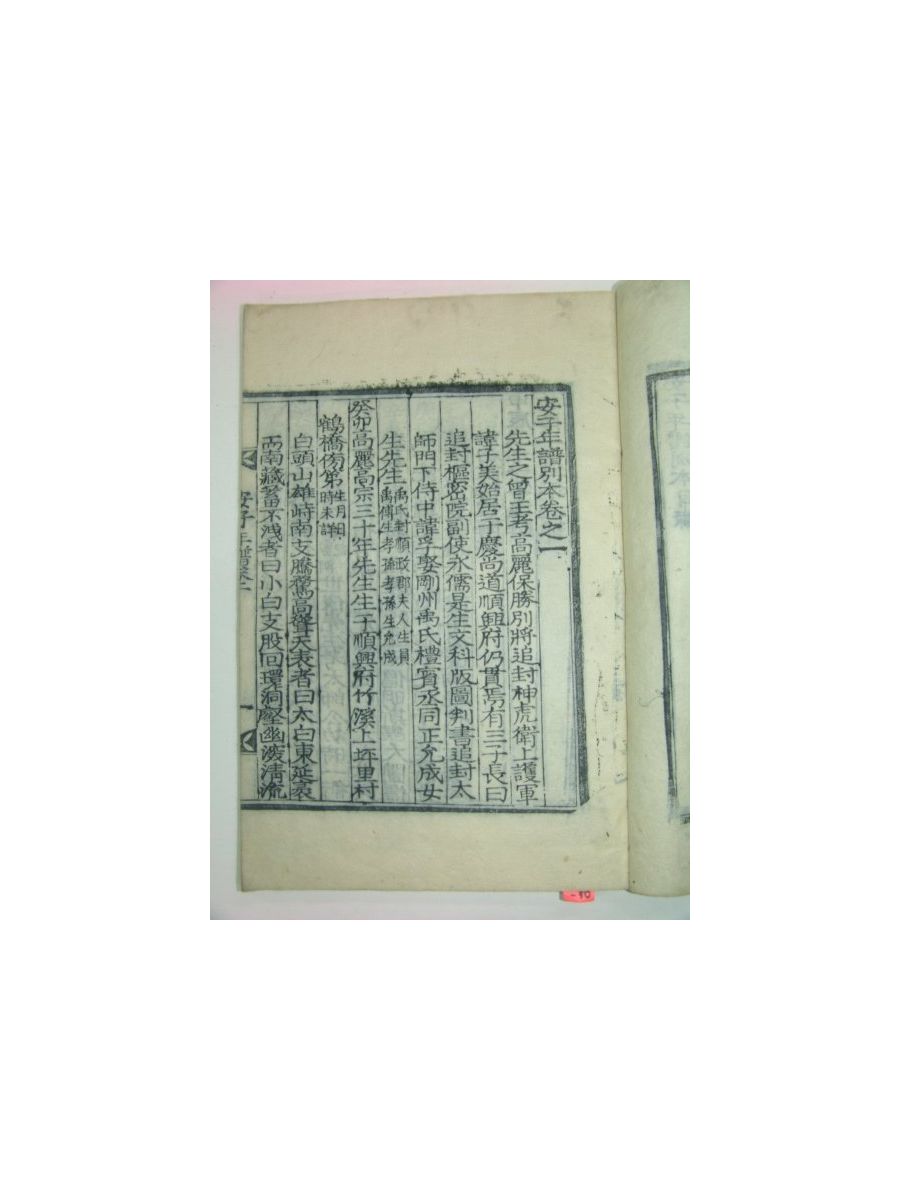 安子年譜別本卷之一
先生之曾王考高麗保勝別將追封神虎衛上護軍
諱子美始居于慶尚道順興府仍貫焉有三子長曰
追封樞密院副使永儒是生文科版圖判書追封太
師門下侍中諱孚娶剛州禹氏禮賓丞同正允成女
生先生禹氏封順政郡夫人生員
禹傳生孝孫孝孫生允成
癸卯高麗高宗三十年先生生于順興府竹溪上坪里村
鶴橋傍第生月日
時未詳
白頭山雄峙南支騰騖高聳天表者曰太白東延袤
而南藏蓄不洩者曰小白支股回環洞壑幽邃清流
安子年譜卷一
一